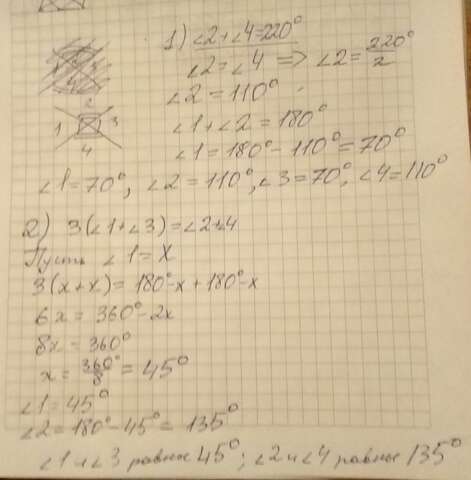 1) ∠2+∠4=220°
∠2=∠4 => ∠2=220°/2
∠2=110°
2
1 3
4
∠1+∠2=180°
∠1=180°-110°=70°
∠1=70°, ∠2=110°, ∠3=70°, ∠4=110°
2) 3(∠1+∠3)=∠2+∠4
Пусть ∠1=X
3(x+x)=180°-x+180°-x
6x=360°-2x
8x=360°
x=360°/8=45°
∠1=45°
∠2=180°-45°=135°
∠1 и ∠3 равные 45°; ∠2 и ∠4 равные 135°